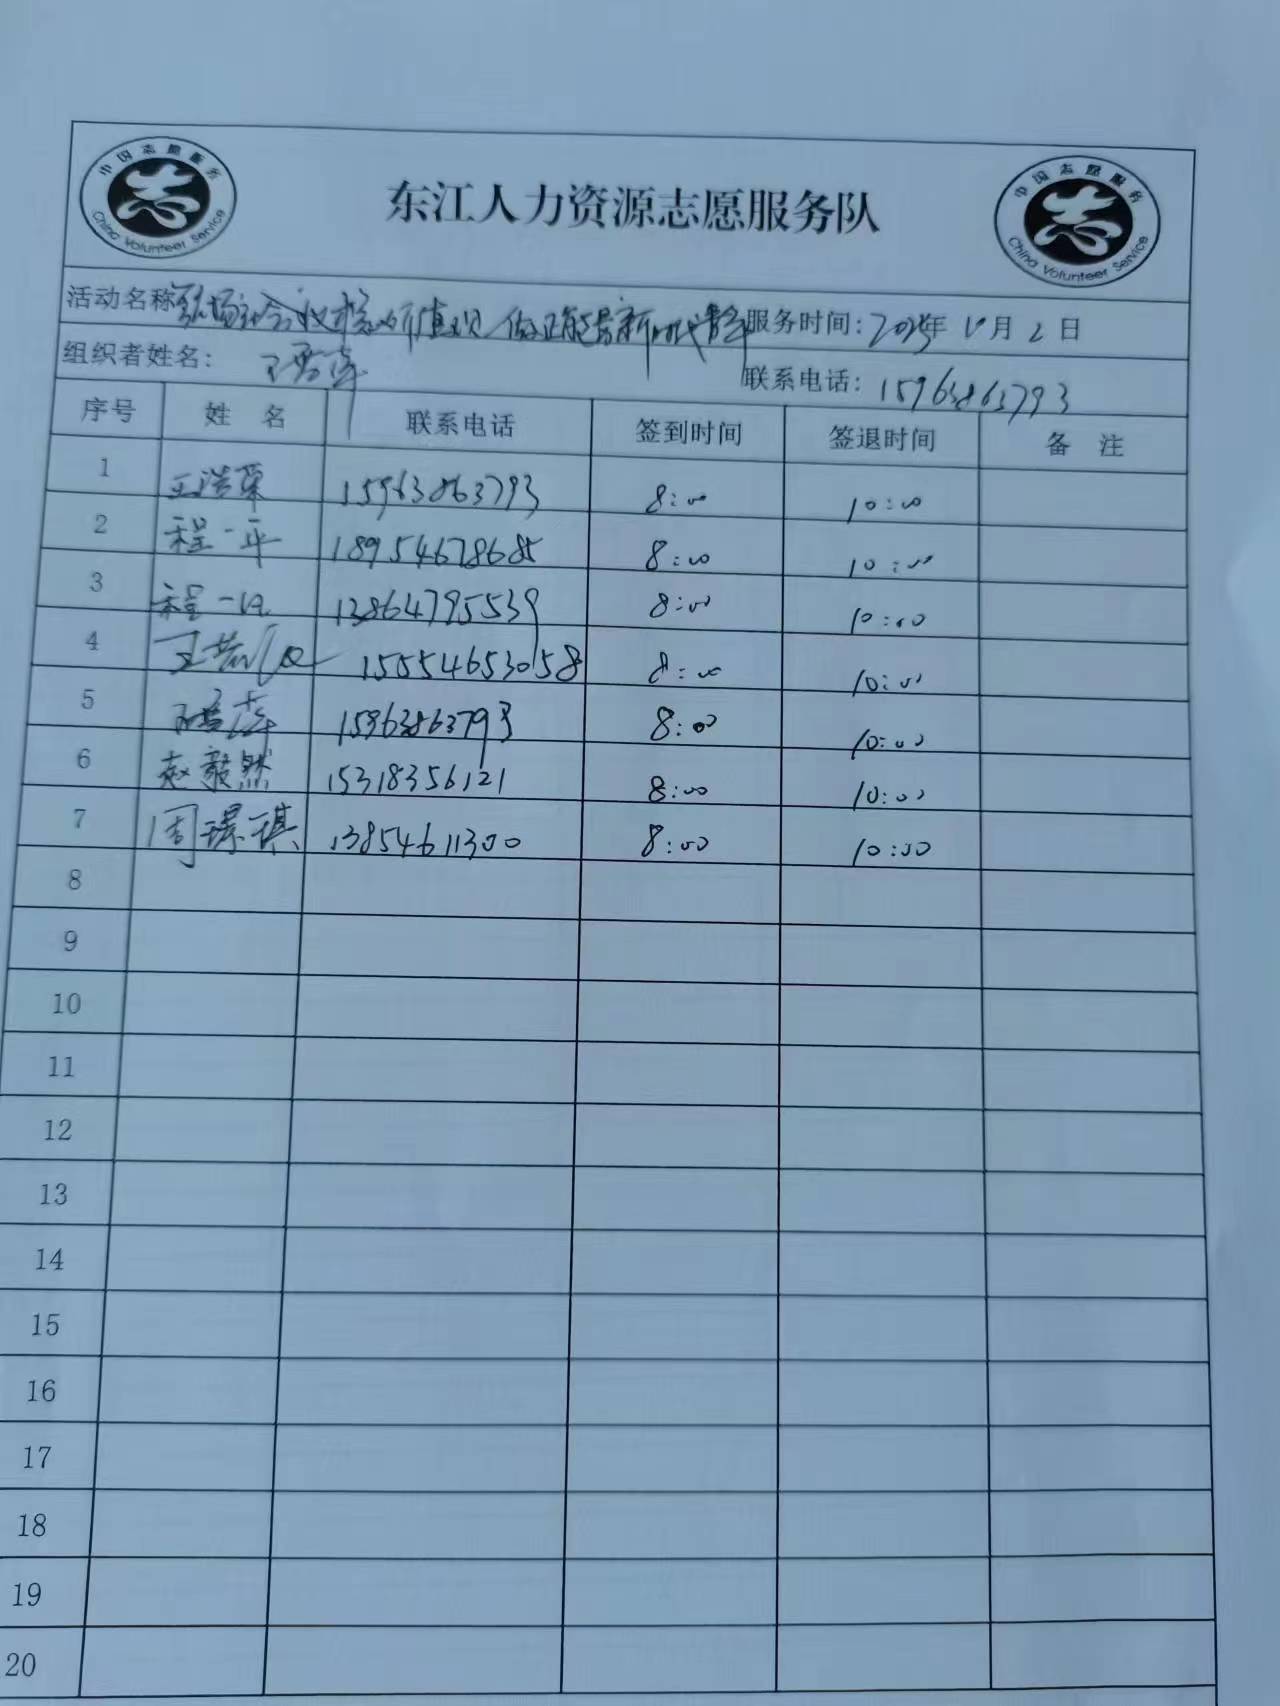 中国志愿服务
China Volunteer Service
东江人力资源志愿服务队
中国志愿服务
China Volunteer Service
活动名称 弘扬社会主义核心价值观 做正能量新时代青年 服务时间：2025年 月2日
组织者姓名： 联系电话：15963863793
序号 姓名 联系电话 签到时间 签退时间 备注
1 王浩荣 15963863793 8:00 10:00
2 程一平 18954678685 8:00 10:00
3 程一 13864795539 8:00 10:00
4 王 15554653058 8:00 10:00
5 15963863793 8:00 10:00
6 赵毅然 15318356121 8:00 10:00
7 周璟琪 13854611300 8:00 10:00
8
9
10
11
12
13
14
15
16
17
18
19
20